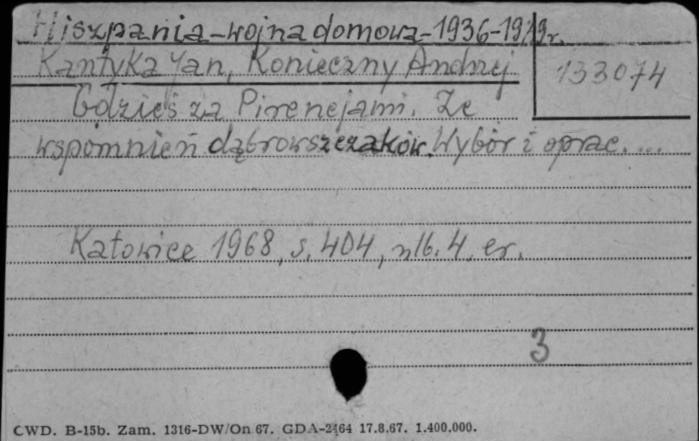 Hiszpania-wojna domowa-1936-1939r.
Kantyka Jan, Konieczny Andrzej
133074
Gdzieś za Pirenejami. Ze
wspomnień dąbrowszczaków. Wybór i oprac. ...
Katowice 1968, s. 404, nlb. 4.
3
CWD. B-15b. Zam. 1316-DW/On 67. GDA-2464 17.8.67. 1.400.000.